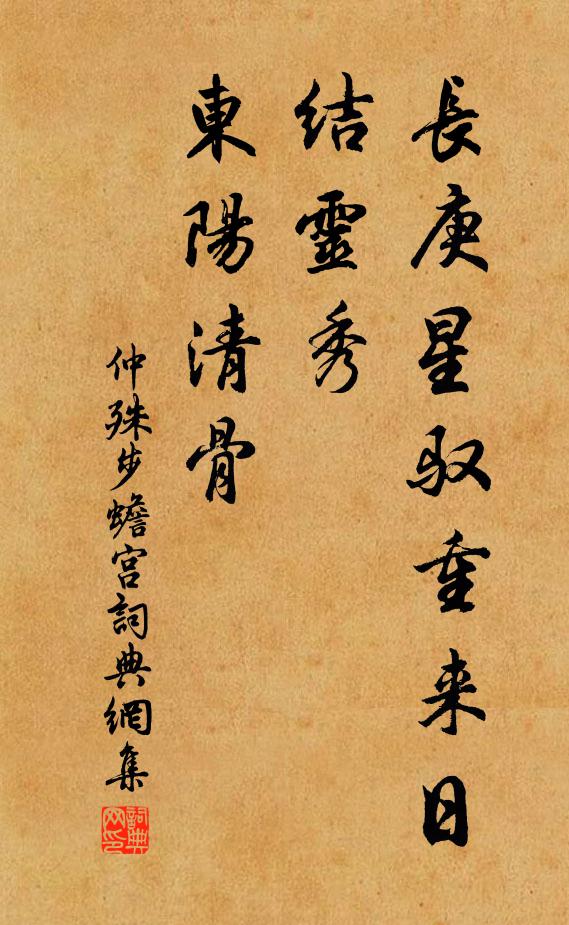 長庚星馭重来日
結靈秀
東陽清骨
仲殊步蟾宫詞典網集
詞典网印